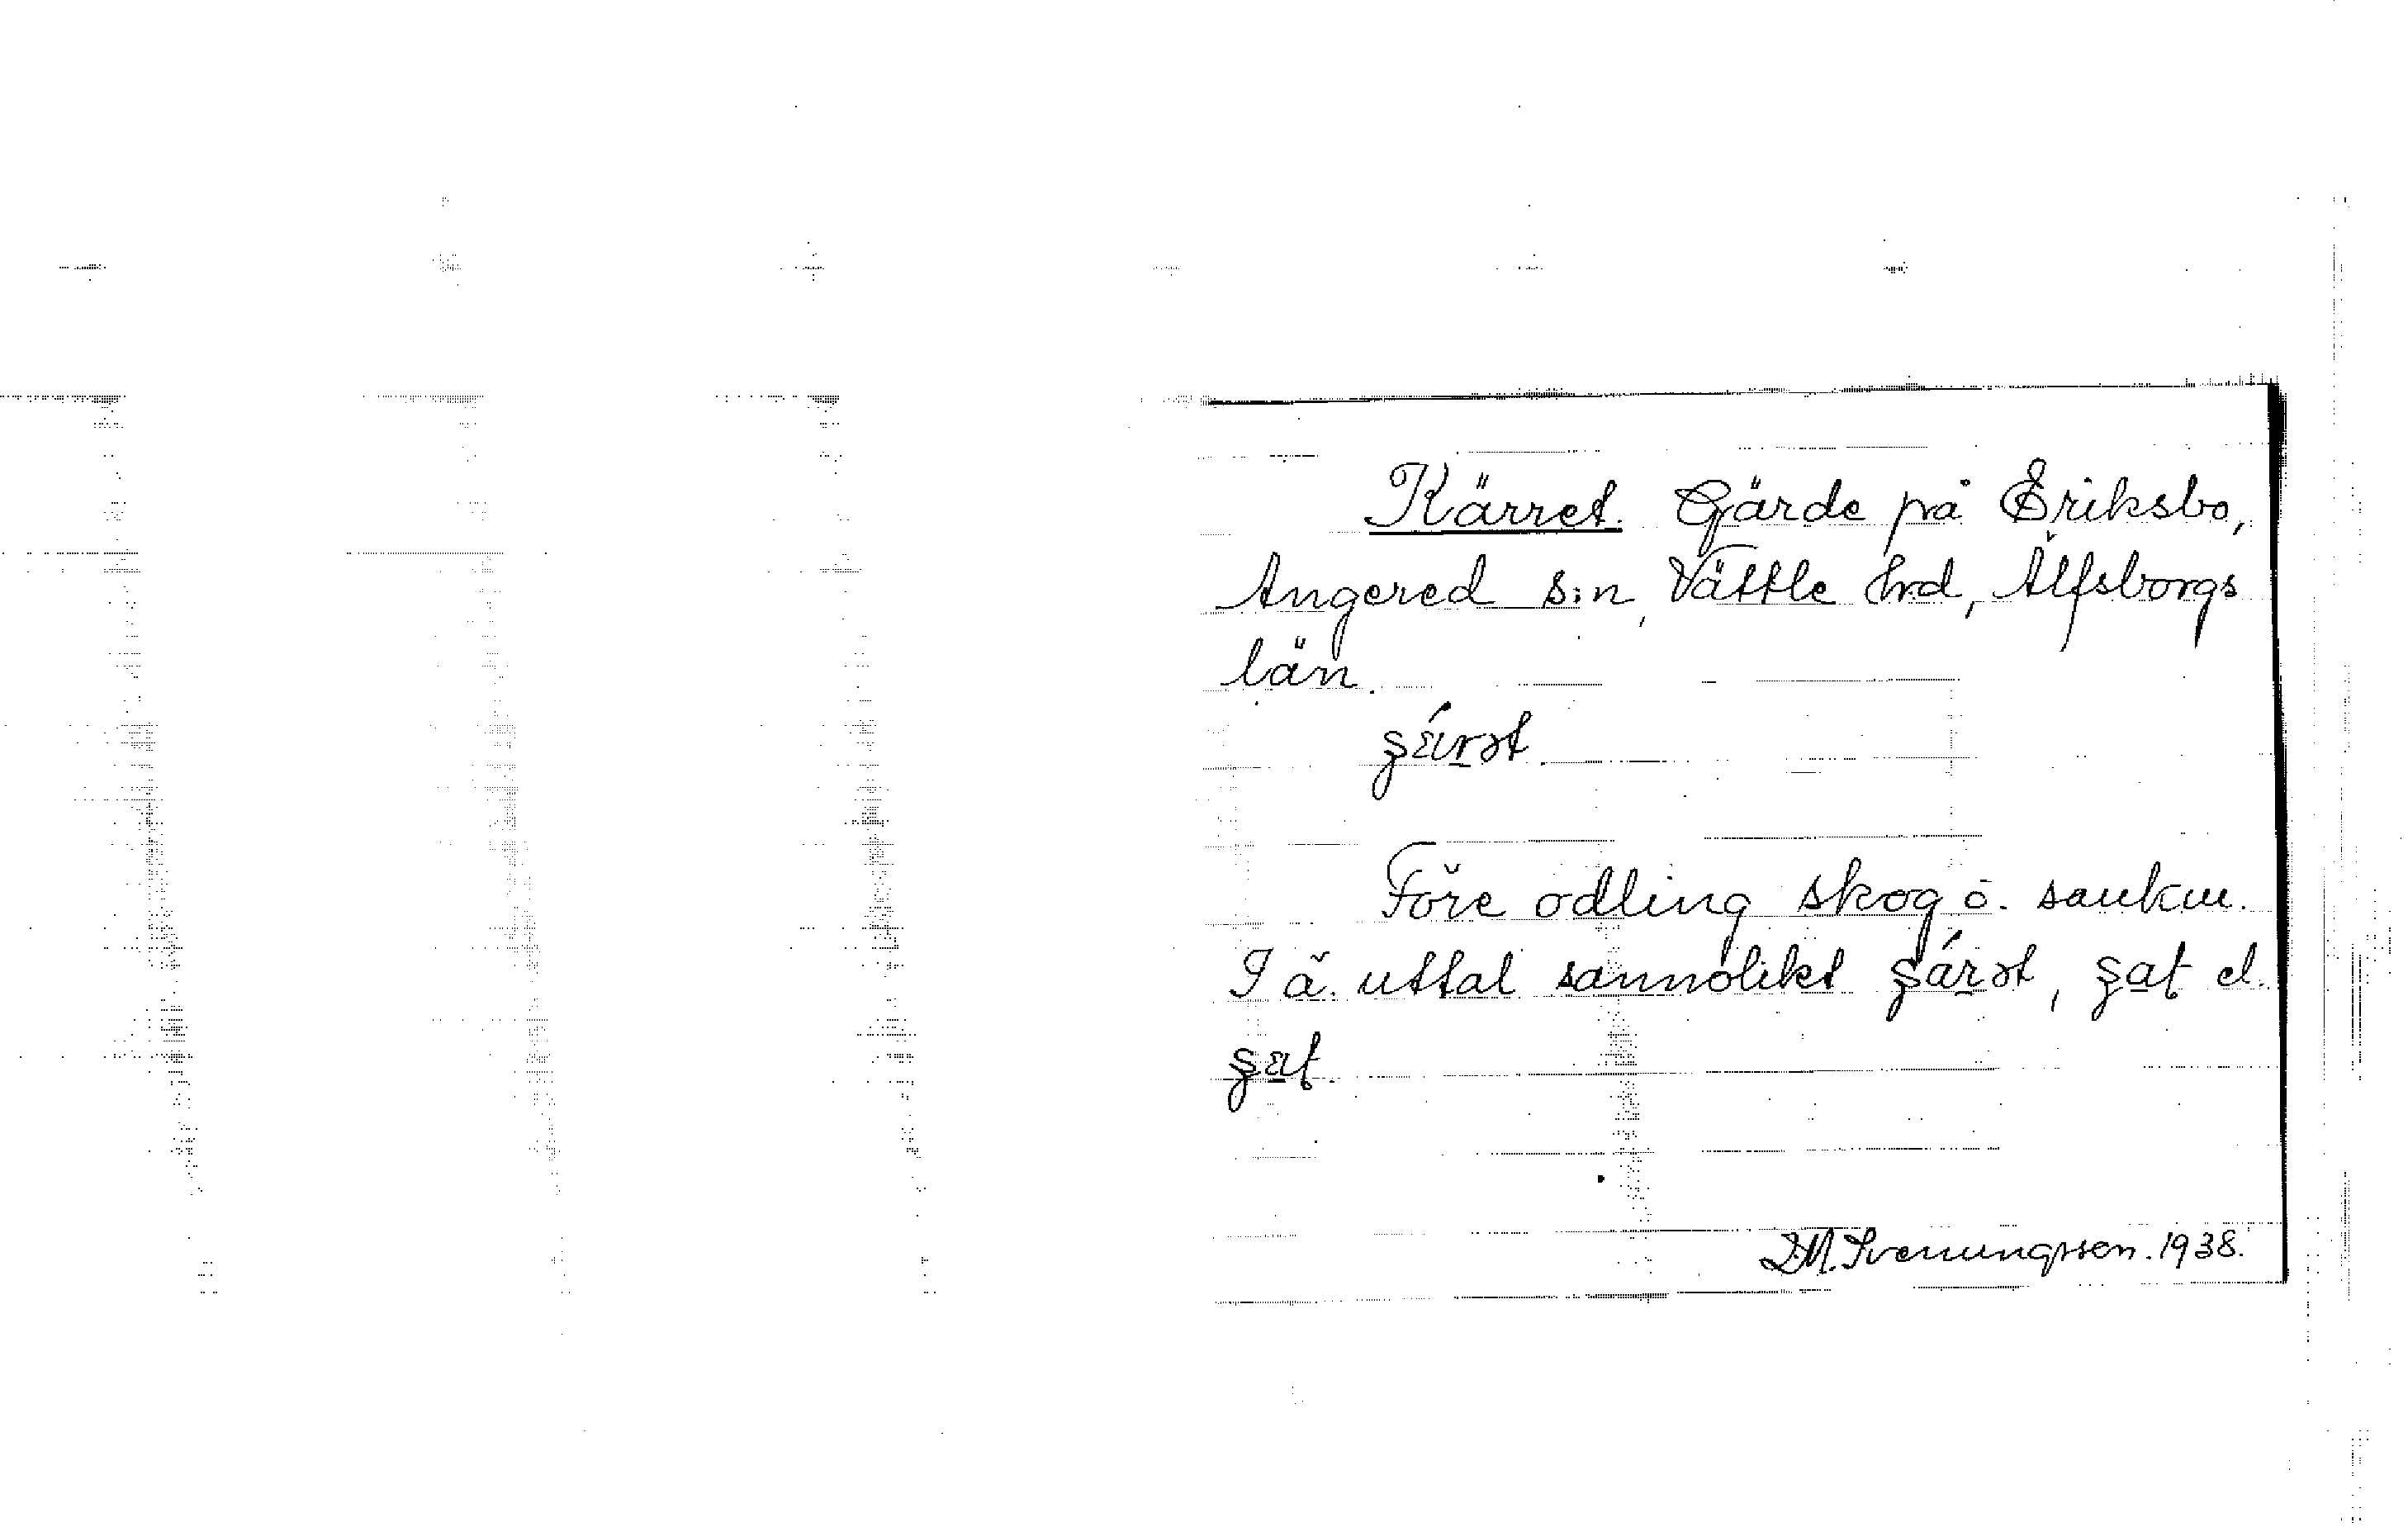 Kärret. Gärde på Eriksbo,
Angered s:n, Vättle hrd, Älfsborgs
län.
Före odling skog o. sankm.
I ä. uttal sannolikt
D.M. Svenungsson. 1938.